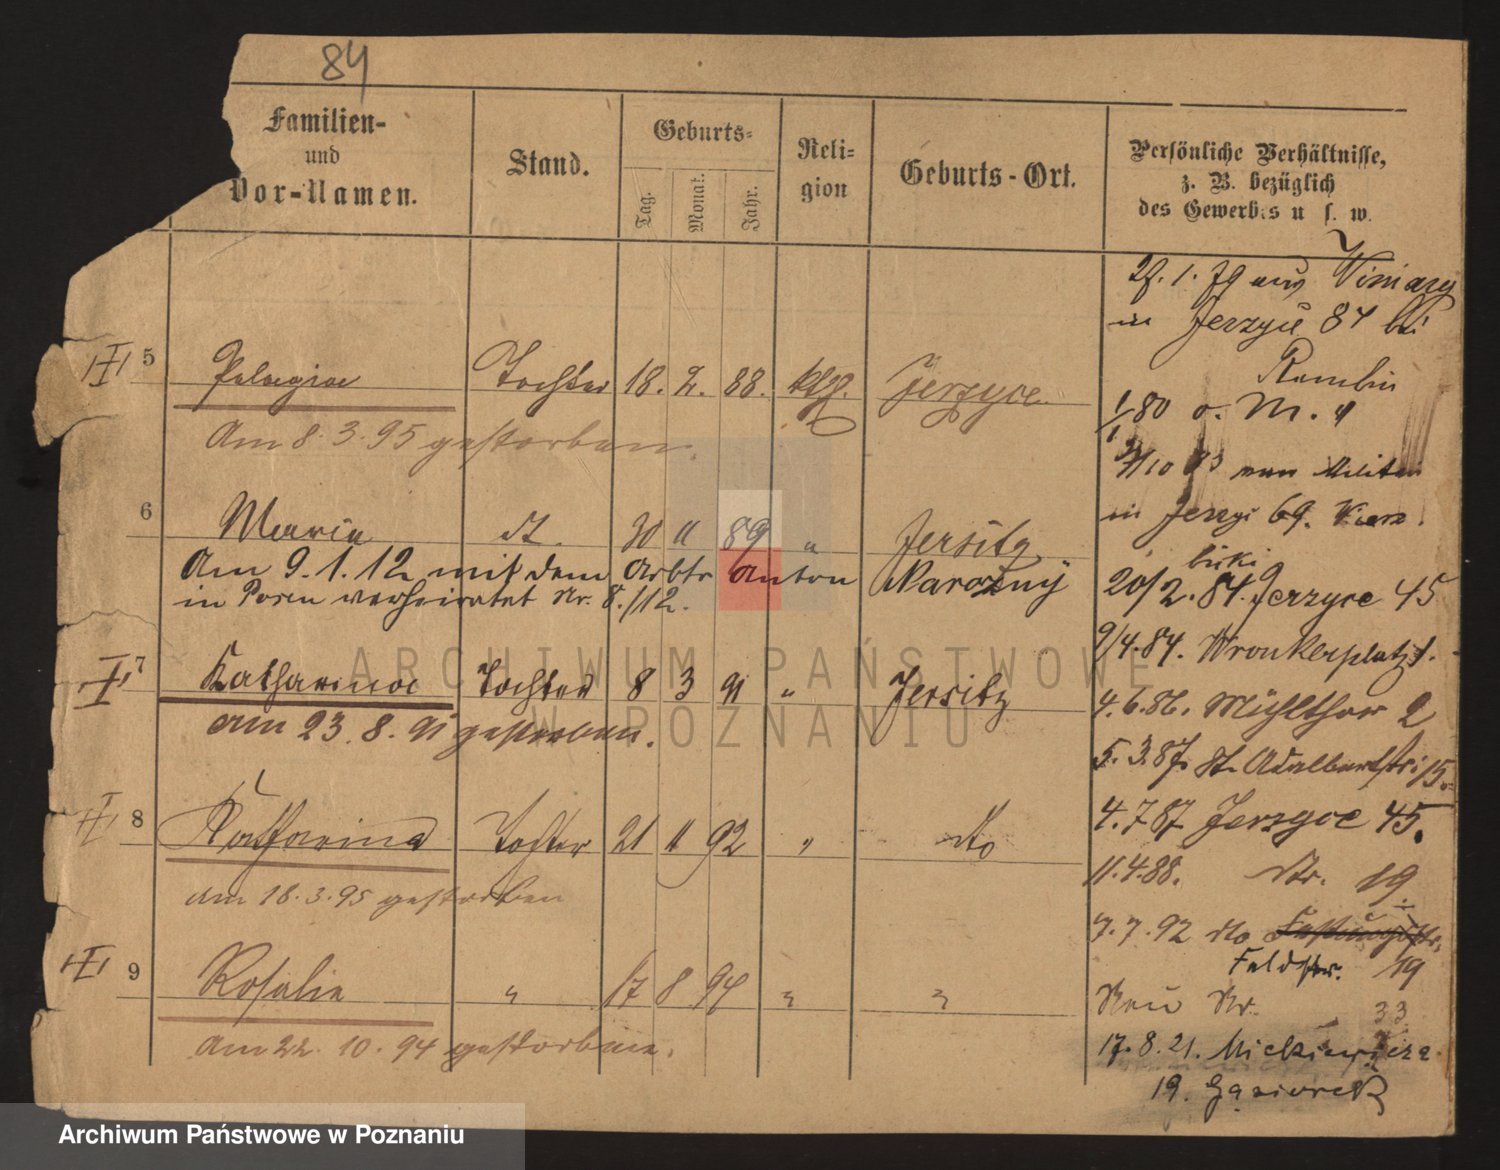 84
Familien-
und
Vor-Namen.
Stand.
Geburts-
Tag.
Monat.
Jahr.
Reli-
gion
Geburts-Ort.
Persönliche Verhältnisse,
z. B. bezüglich
des Gewerbes u s. w.
5 Pelagia Tochter 18. 2. 88. kath. Jerzyce.
Am 8. 3. 95 gestorben.
6 Maria dt. 30 11 89 " Jersitz
Am 9. 1. 12 mit dem Arbtr Anton Narozny
in Posen verheiratet Nr. 8./12.
7 Katharina Tochter 8 3 91 " Jersitz
am 23. 8. 91 gestorben.
8 Katharina Tochter 21 11 92 " dto
am 18. 3. 95 gestorben
9 Rosalie " 17 8 94 " "
am 22. 10. 94 gestorben.
1. 79 aus Winiary
in Jerzyce 84 bei
80
83 vom Militär
in 69.
20/2. 84. Jerzyce 45
9/4. 84. Wronkerplatz 1.
4. 6. 86. Mühlthor 2
5. 3. 87. St. Adalbertstr. 15.
4. 7 87 Jerzyce 45.
11. 4. 88. dto. 19.
7. 7. 92 dto Festungsstr.
Feldstr. 19
Neu Nr. 33
17. 8. 21. Mickiewicza
19. Gąsiorek
ARCHIWUM PAŃSTWOWE
W POZNANIU
Archiwum Państwowe w Poznaniu